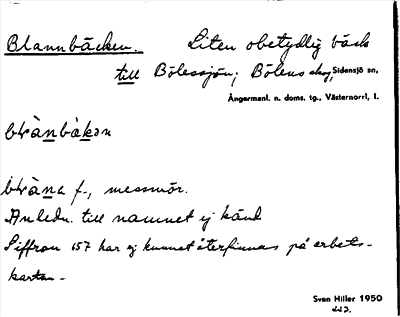 Blannbäcken. Liten obetydlig bäck
till Bölessjön; Bölens skog, Sidensjö sn,
Ångermanl. n. doms. tg., Västernorrl. l.
f., messmör.
Anledn. till namnet ej känd
Siffran 157 har ej kunnat återfinnas på arbets-
kartan-
Sven Hiller 1950